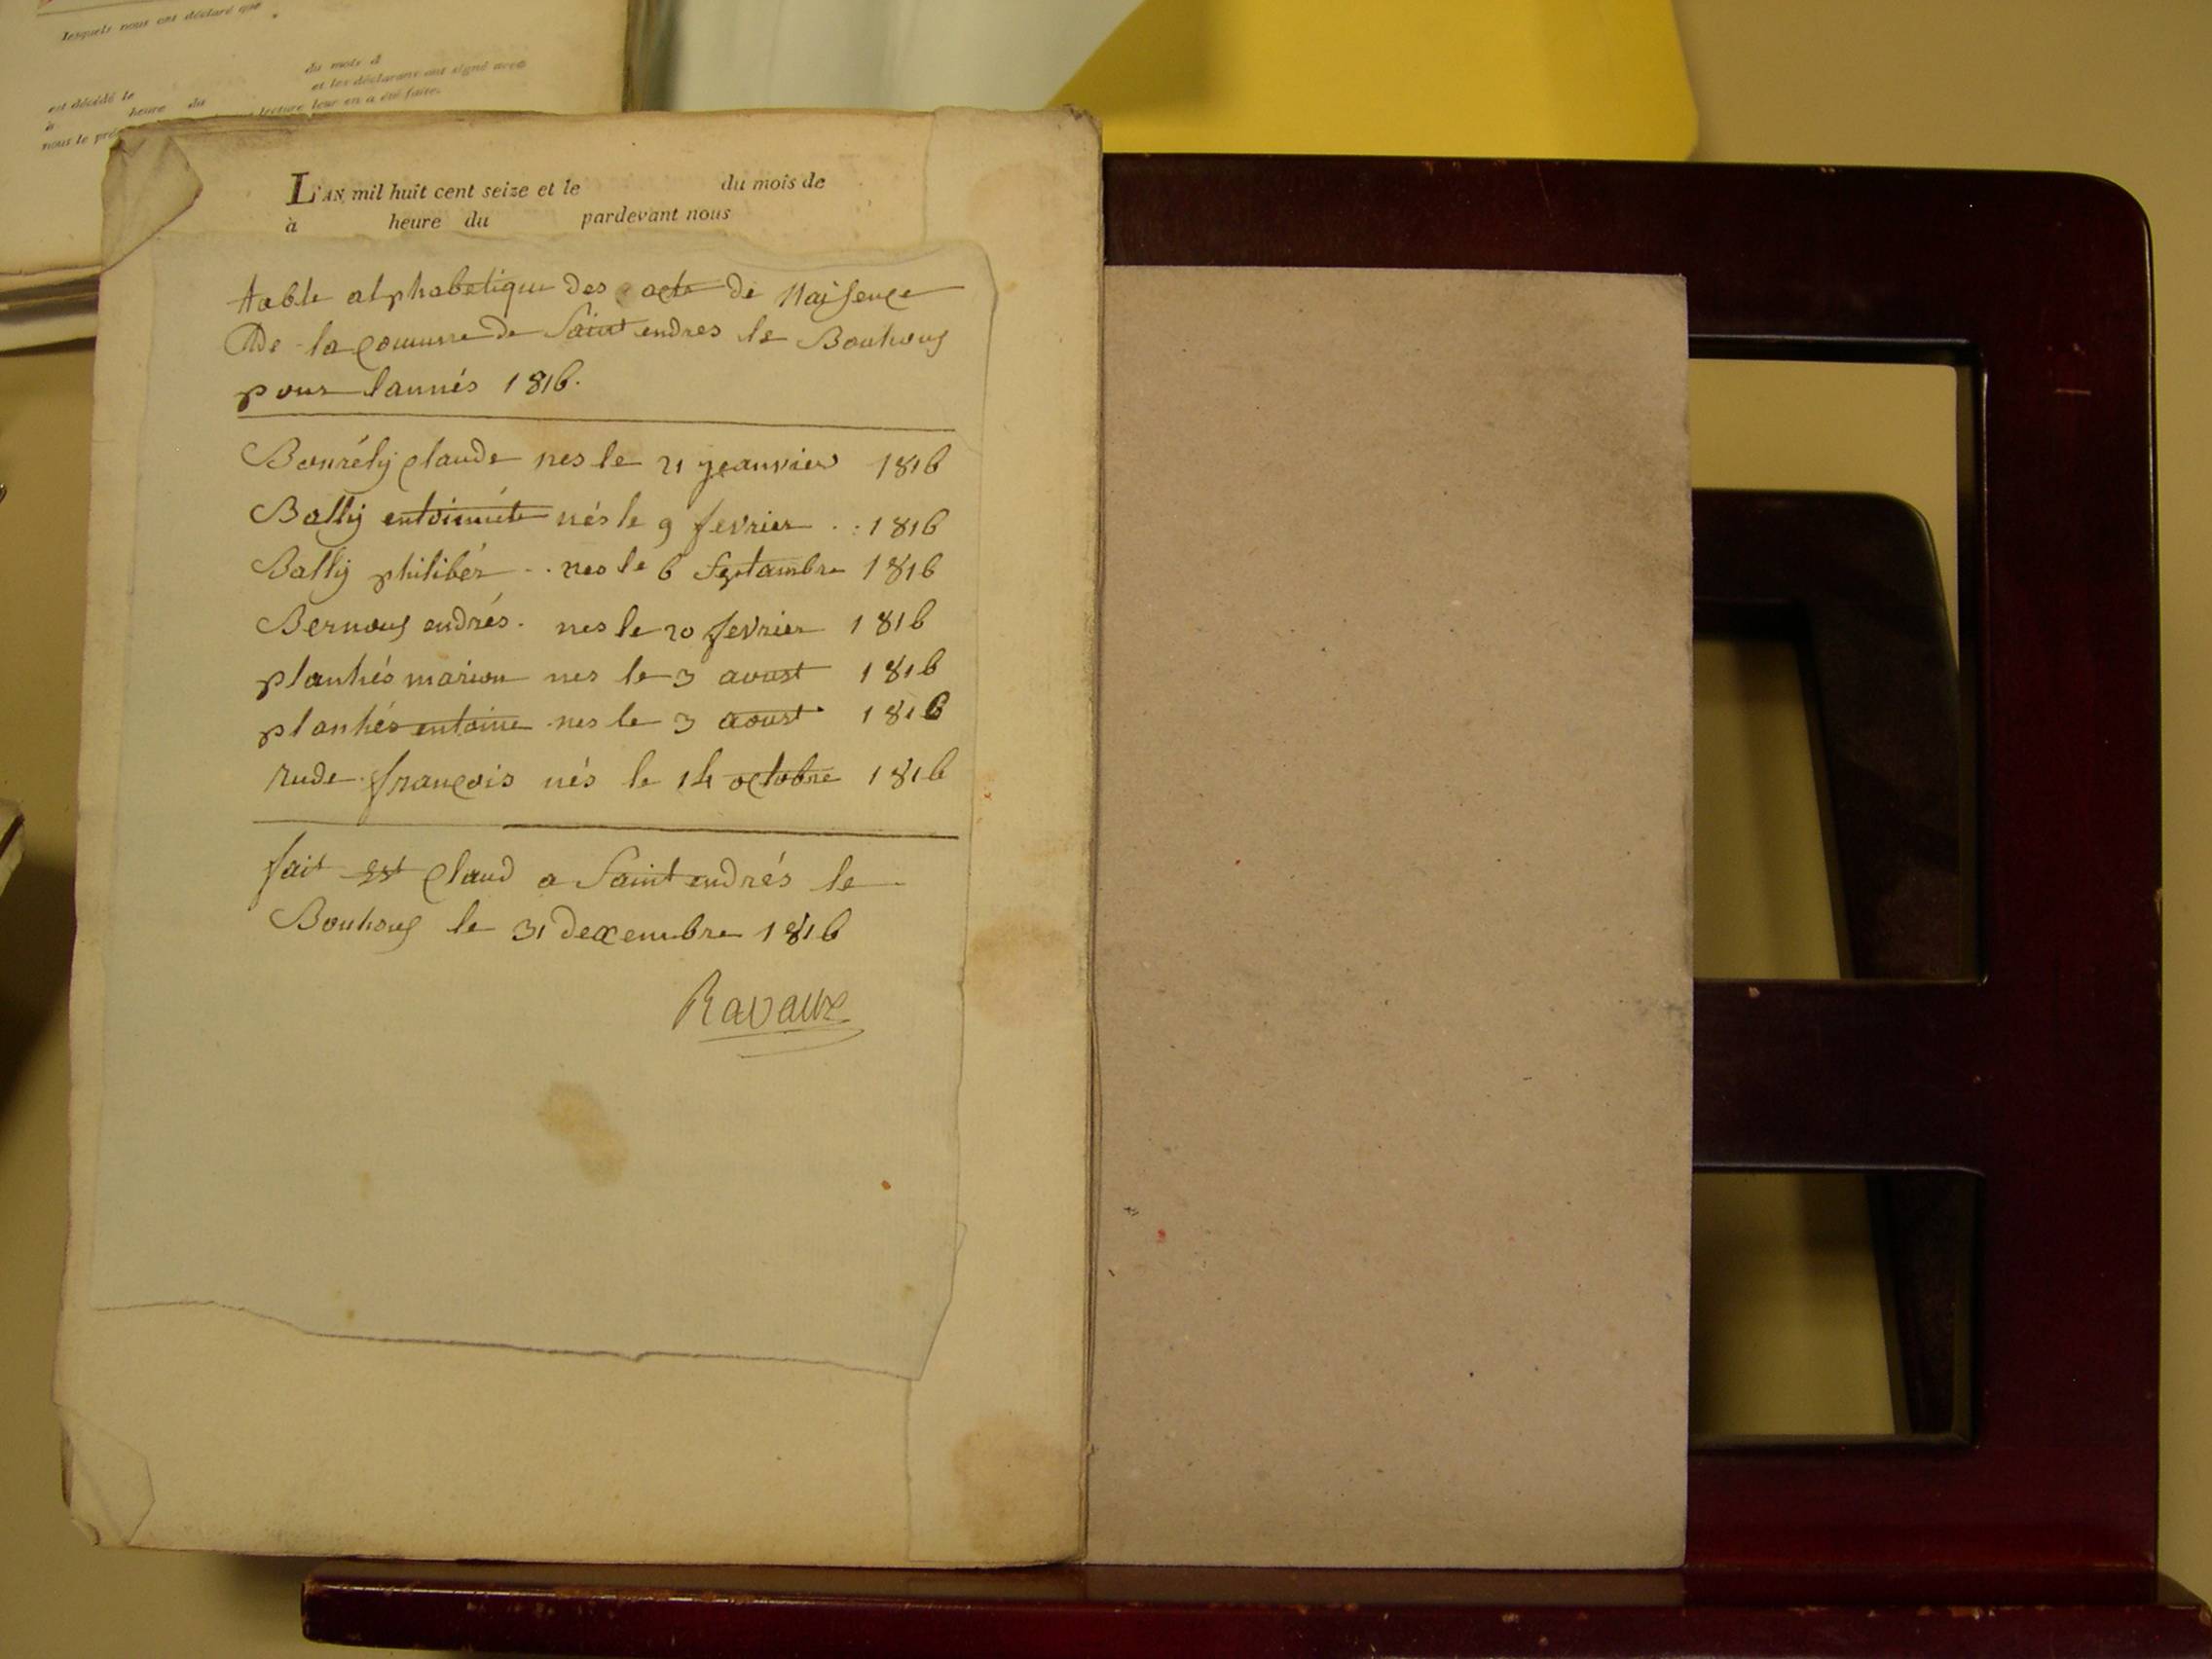 lesquels nous ont déclaré que
du mois d
est décédé le
et les déclarans ont signé avec
à heure du
nous le lecture leur en a été faite.
L'AN mil huit cent seize et le du mois de
à heure du pardevant nous
table alphabetique des acte de Naisence
De la comune de Saint endres le Bouhous
pour lannés 1816.
Bonrély claude nes le 21 jeanvier 1816
Bally entoinnéte nés le 9 fevrier .. 1816
Bally philibér .. nes le 6 Septambre 1816
Bernous endrés. nes le 20 fevrier 1816
planhés marion nes le 3 avust 1816
planhés entoine nes le 3 aoust 1816
Rude françois nés le 14 octobre 1816
fait est claud a Saint endrés le
Bouhous le 31 decembre 1816
Ravaux